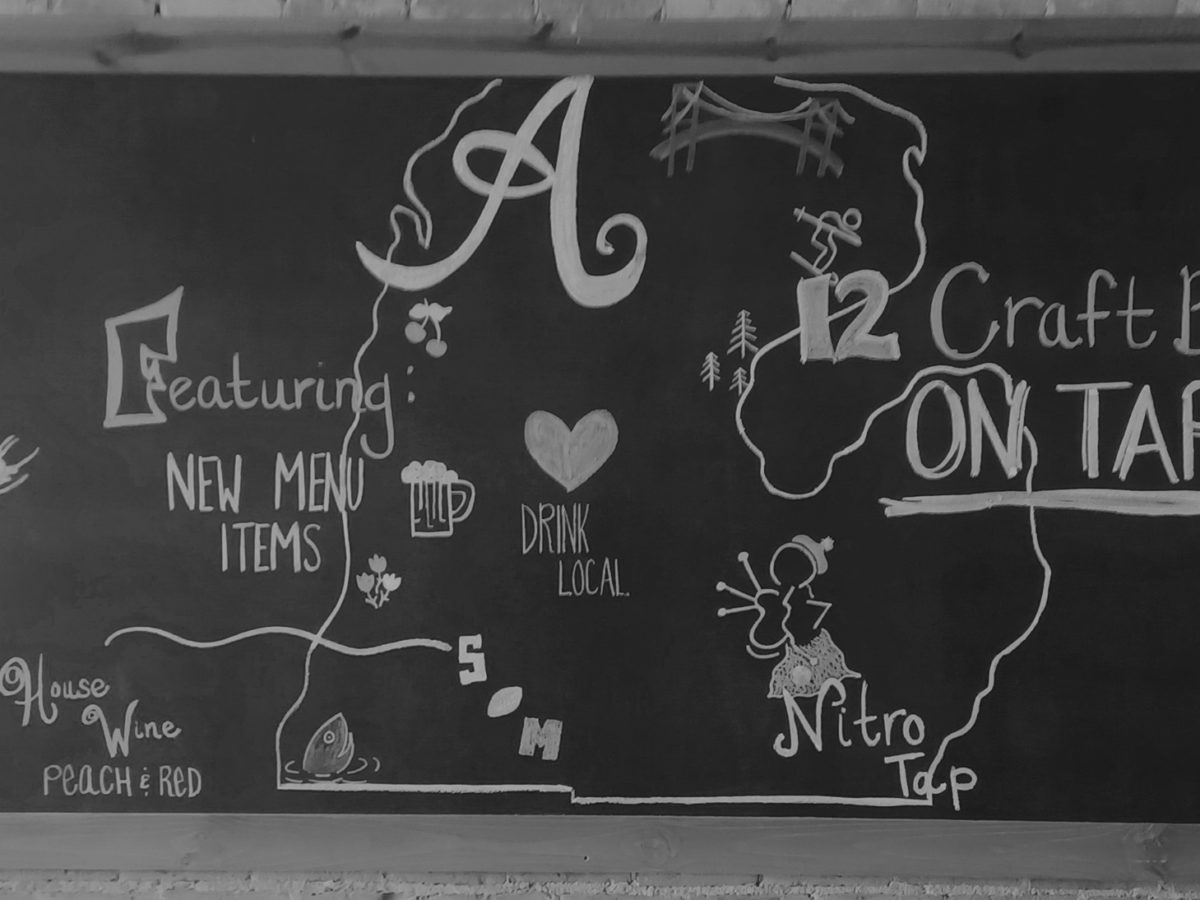 A
Featuring:
NEW MENU
ITEMS
DRINK
LOCAL.
12 Craft B
ON TAP
S
M
House
Wine
PEACH & RED
Nitro
Tap